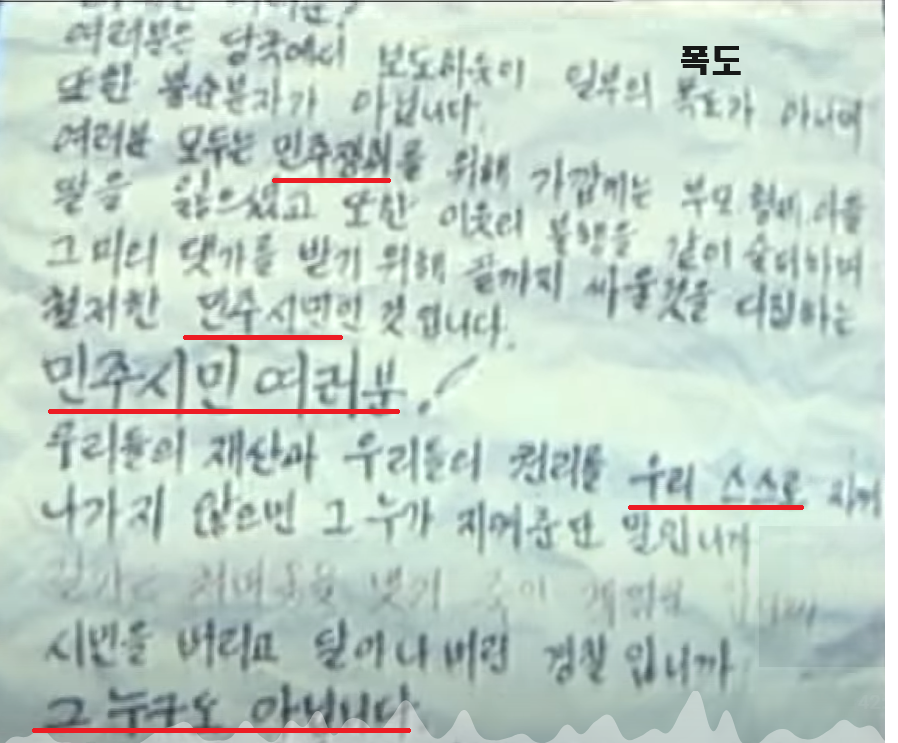 여러분은 당국에서 보도하듯이 일부의 폭도가 아니며
폭도
또한 불순분자가 아닙니다.
여러분 모두는 민주쟁취를 위해 가깝게는 부모 형제 아들
딸을 잃으셨고 또한 이웃의 불행을 같이 슬퍼하며
그 피의 댓가를 받기 위해 끝까지 싸울것을 다짐하는
철저한 민주시민인 것입니다.
민주시민 여러분!
우리들의 재산과 우리들의 권리를 우리 스스로 지켜
나가지 않으면 그 누가 지켜준단 말입니까
시민을 버리고 달아나 버린 경찰입니까
그 누구도 아닙니다.